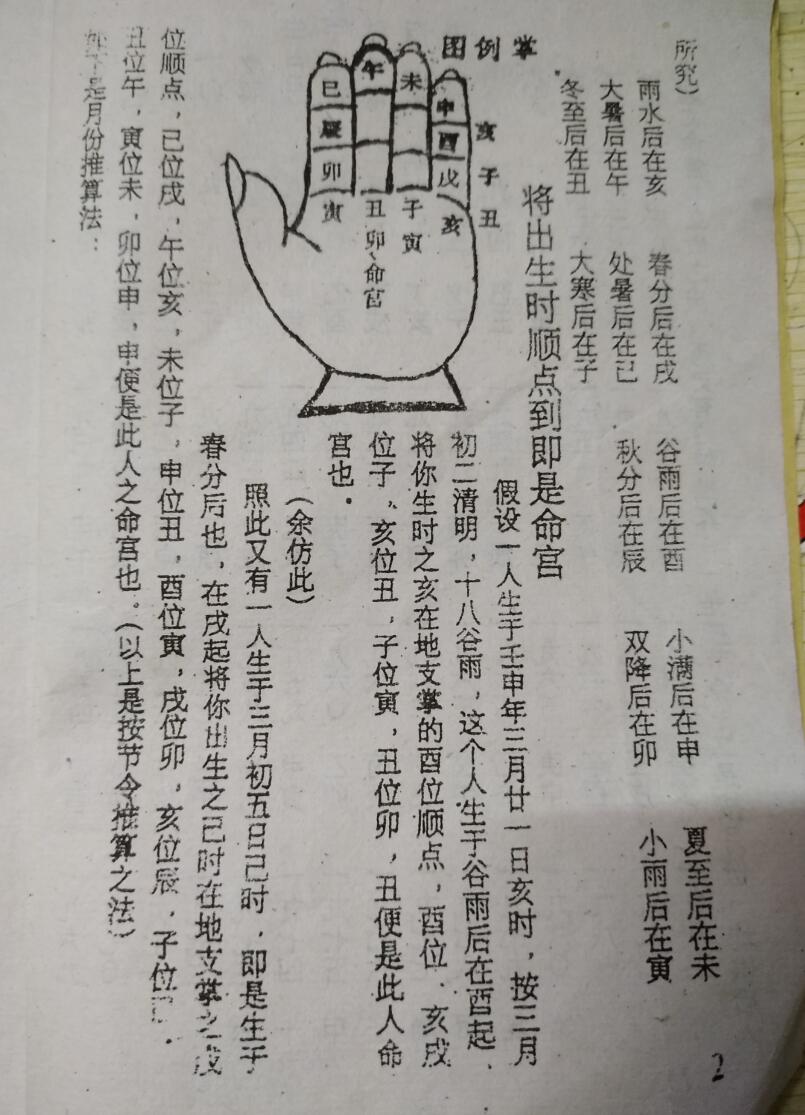 所究）
雨水后在亥 春分后在戌 谷雨后在酉 小满后在申 夏至后在未
大暑后在午 处暑后在已 秋分后在辰 双降后在卯 小雨后在寅
冬至后在丑 大寒后在子
将出生时顺点到即是命宫
图例掌
巳 午 未 申
辰 酉 亥
卯 戌 子
寅 丑 子 亥 丑
卯、命宫 寅
假设一人生于壬申年三月廿一日亥时，按三月
初二清明，十八谷雨，这个人生于谷雨后在酉起，
将你生时之亥在地支掌的酉位顺点，酉位．亥戌
位子、亥位丑，子位寅，丑位卯，丑便是此人命
宫也．
（余仿此）
照此又有一人生于三月初五日己时，即是生于
春分后也，在戌起将你出生之己时在地支掌之戌
位顺点，已位戌，午位亥，未位子，申位丑，酉位寅，戌位卯，亥位辰，子位
丑位午，寅位未，卯位申，申便是此人之命宫也。（以上是按节令推算之法）
如下是月份推算法：
2